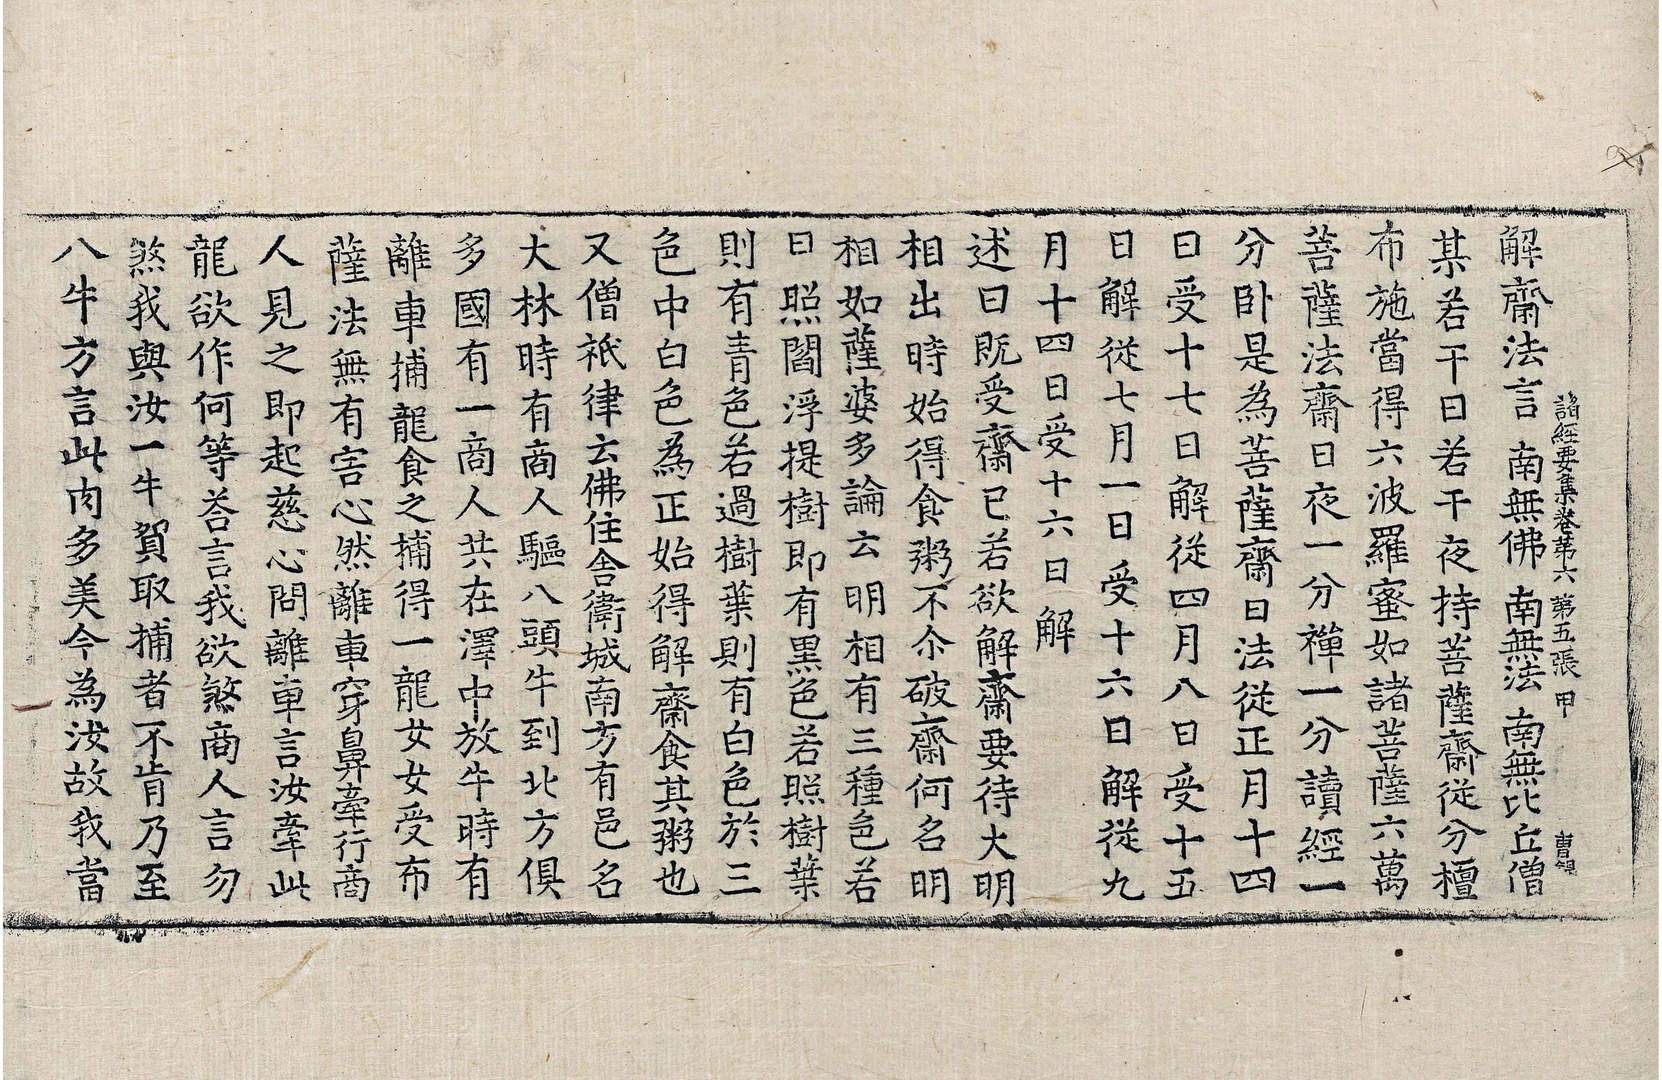 諸經要集卷第六 第五張 甲
解齋法言 南無佛 南無法 南無比丘僧
某若干日若干夜持菩薩齋從分檀
布施當得六波羅蜜如諸菩薩六萬
菩薩法齋日夜一分禪一分讀經一
分卧是為菩薩齋日法從正月十四
日受十七日解從四月八日受十五
日解從七月一日受十六日解從九
月十四日受十六日解
述曰既受齋已若欲解齋要待大明
相出時始得食粥不尒破齋何名明
相如薩婆多論云明相有三種色若
日照閻浮提樹即有黑色若照樹葉
則有青色若過樹葉則有白色於三
色中白色為正始得解齋食其粥也
又僧祇律云佛住舍衛城南方有邑名
大林時有商人驅八頭牛到北方俱
多國有一商人共在澤中放牛時有
離車捕龍食之捕得一龍女女受布
薩法無有害心然離車穿鼻牽行商
人見之即起慈心問離車言汝牽此
龍欲作何等荅言我欲煞商人言勿
煞我與汝一牛貿取捕者不肯乃至
八牛方言此肉多美今為汝故我當